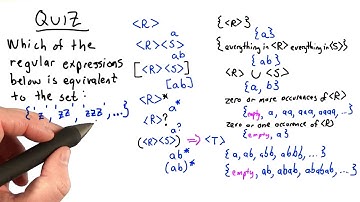 QUIZ
Which of the
regular expressions
below is equivalent
to the set:
{'z', 'zz', 'zzz', ...}
<R>
a
<R><S>
ab
[<R><S>]
[ab]
<R>*
a*
<R>?
a?
(<R><S>) ⇒ <T>
ab*
(ab)*
{<R>}
{a}
{everything in <R> everything in <S>}
{ab}
<R> ∪ <S>
{a, b}
zero or more occurances of <R>
{empty, a, aa, aaa, aaaa, ...}
zero or one occurance of <R>
{empty, a}
{a, ab, abb, abbb, ...}
{empty, ab, abab, ababab, ...}